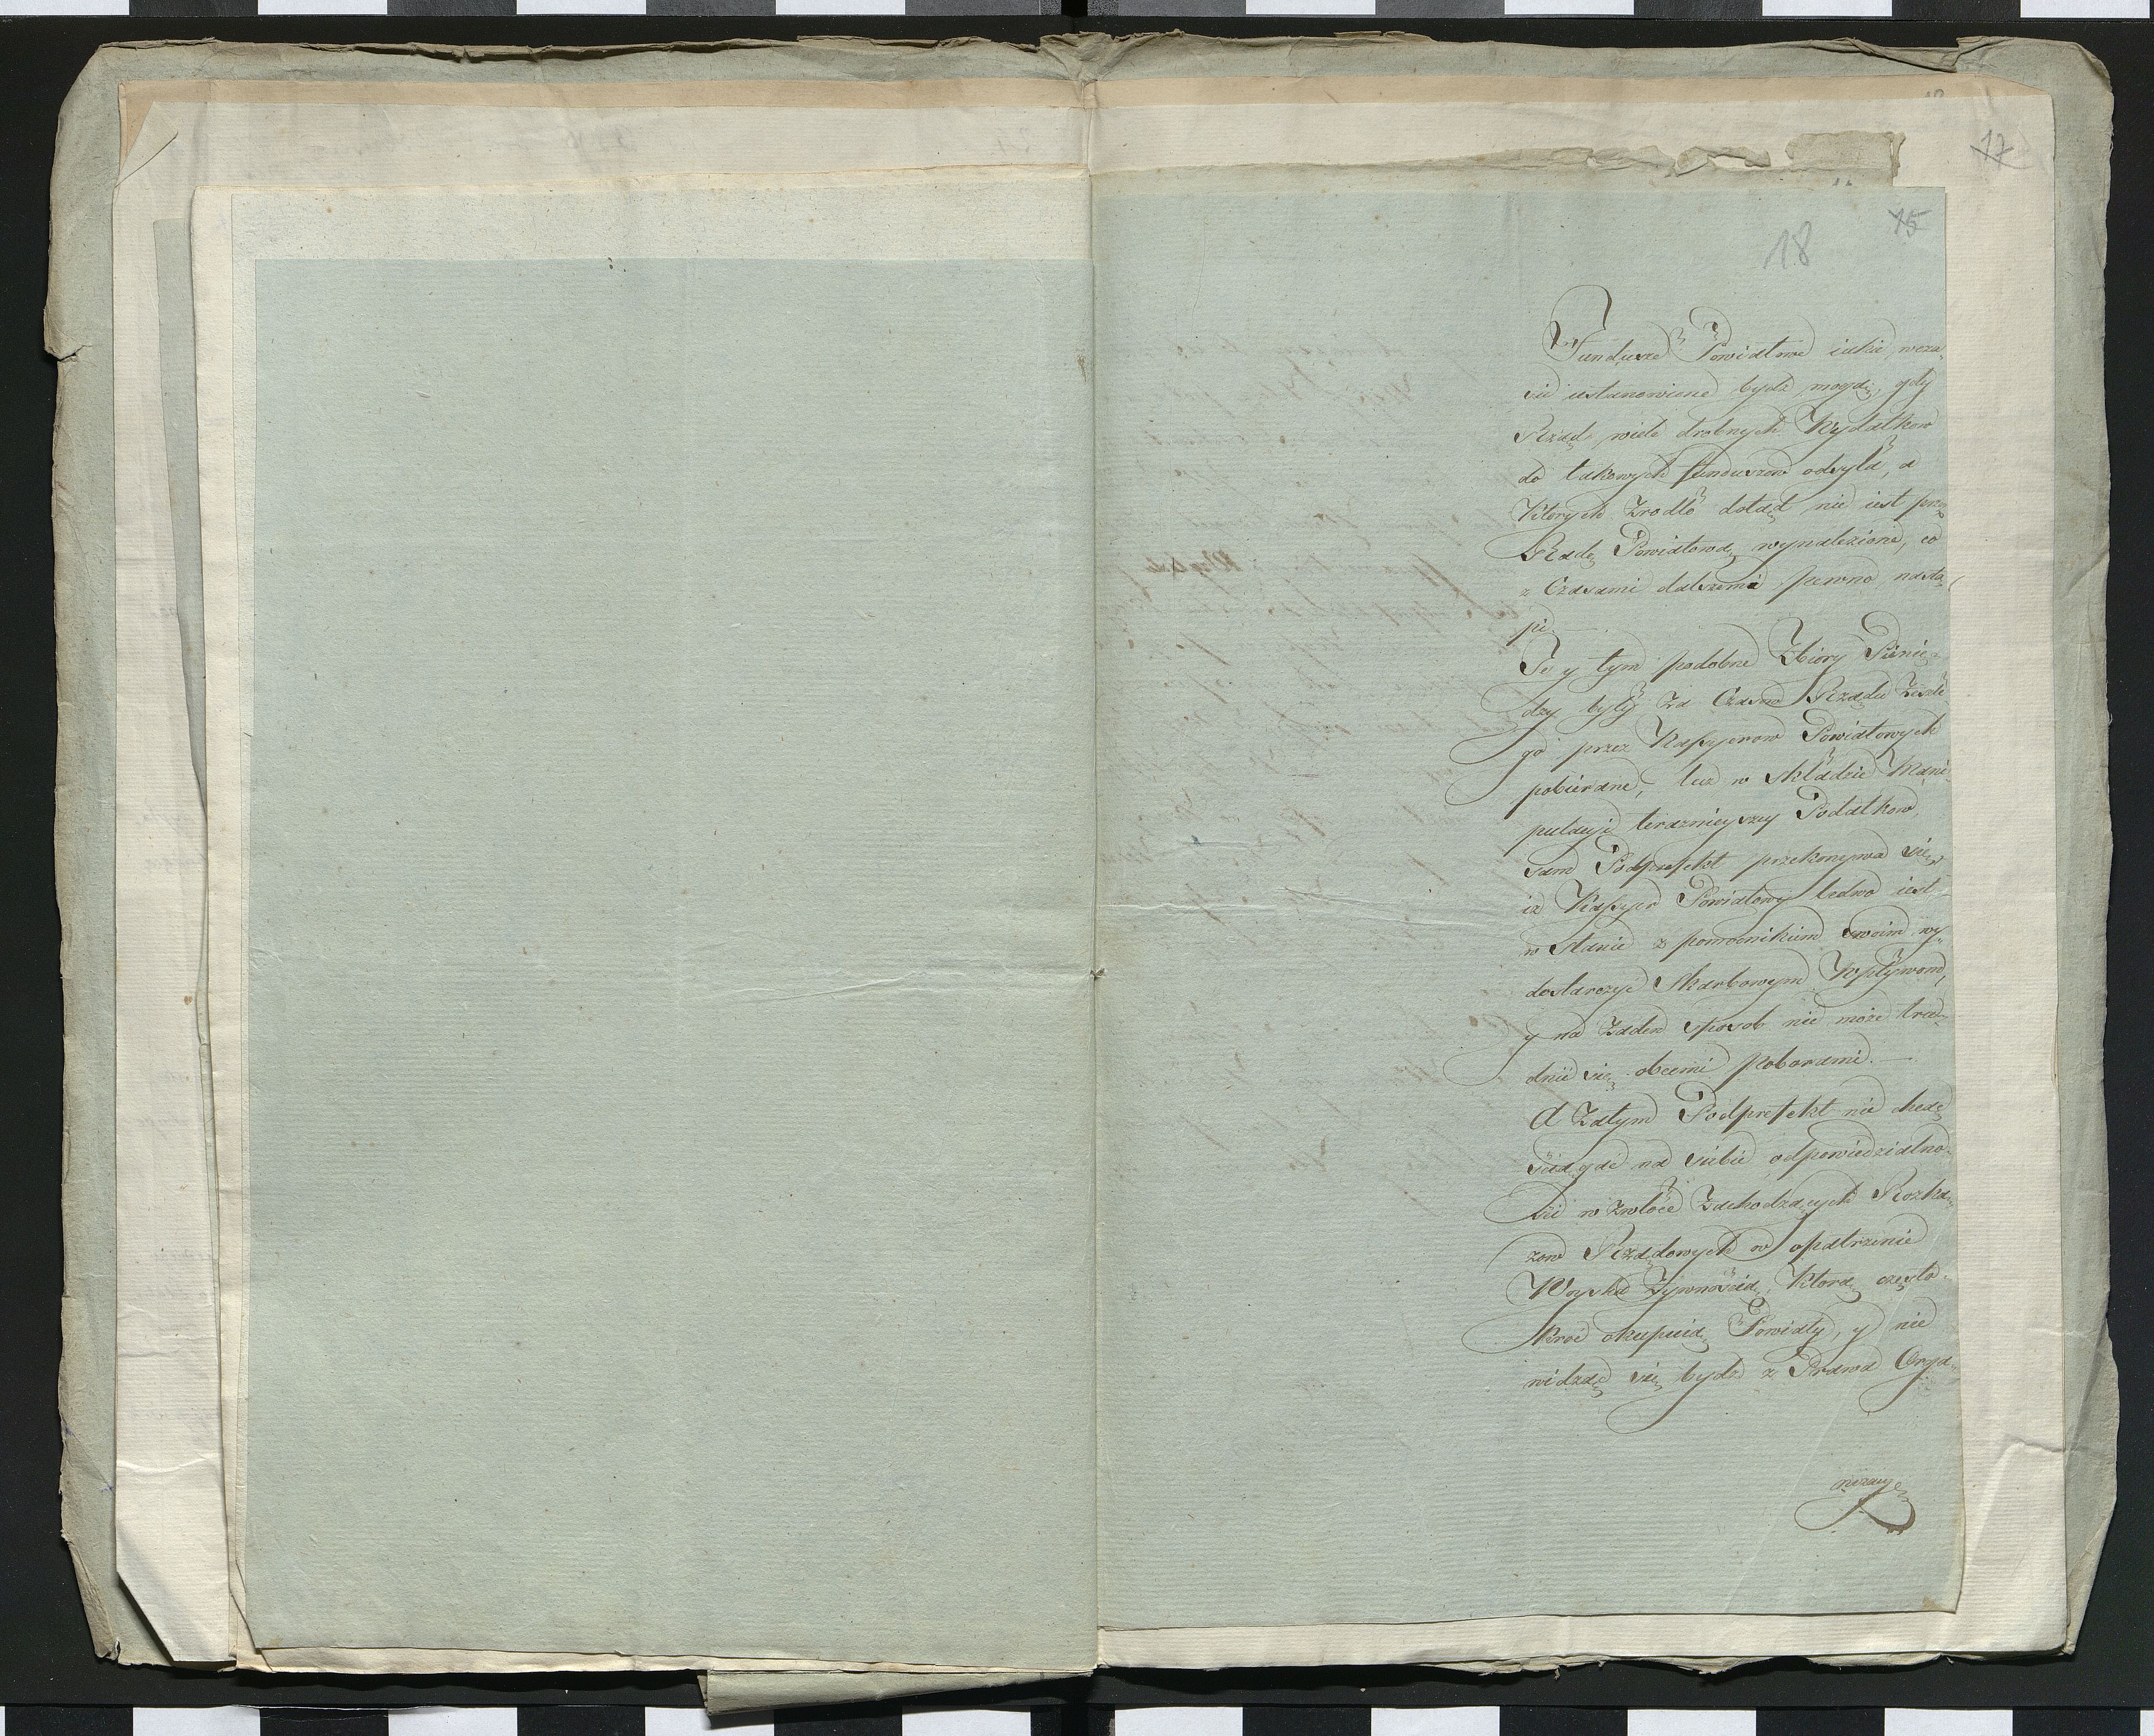 17
15
18
Fundusze Powiatowe iakie wcza-
sie ustanowione bydz mogą, gdy
Rząd wiele drobnych Wydatkow
do takowych funduszow odsyła, a
Ktorych Zrodło dotąd nie iest prze
Radę Powiatową wynalezione, co
z Czasami dalszemi pewno nastą-
pi. —
Te y tym podobne Zbiory Pienię-
dzy były za Czasow Rządu Zeszłe
go przez Kassyerow Powiatowych
pobierane, lecz w składzie Mani-
pulacyi teraznieyszey Podatkow,
sam Podprefekt przekonywa się,
iż Kassyer Powiatowy ledwo iest
w stanie z pomocnikiem swoim wy-
dostarczyć Skarbowym Wpływom,
y na żaden sposob nie może tru-
dnić się obcemi poborami. —
A Zatym Podprefekt nie chcąc
sciągać na siebie odpowiedzialno-
ści w zwłoce Zachodzących Rozka-
zow Rządowych w opatrzenie
Woyska Żywnością, Ktore często-
kroć okupuią Powiaty, y nie
widząc się bydz z Prawa Orga-
nizacyi